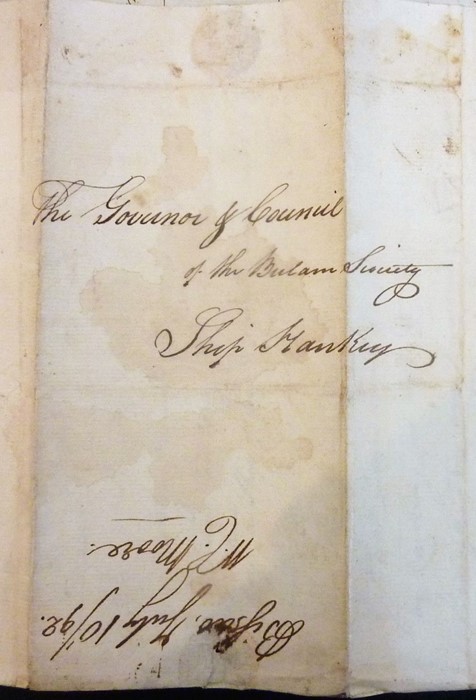 The Governor & Council
of the Bulam Society
Ship Hankey
Bissao, July 10/92.
Moore.